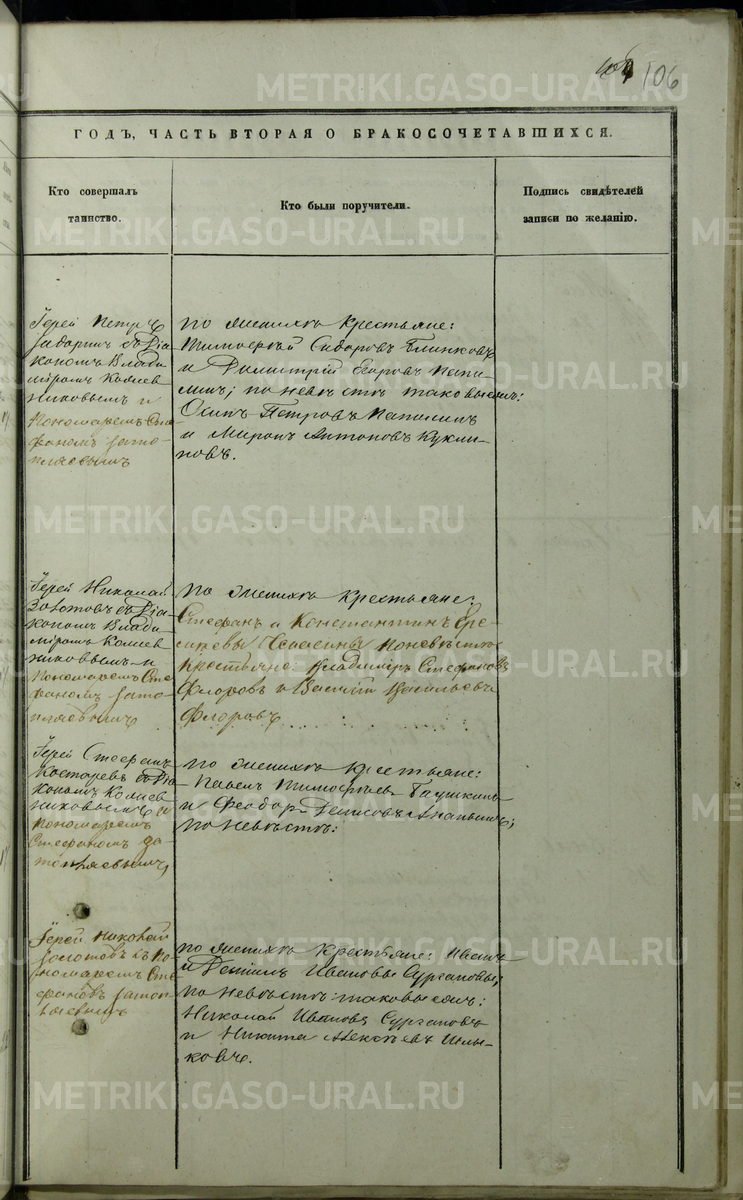 106
ГОДЪ, ЧАСТЬ ВТОРАЯ О БРАКОСОЧЕТАВШИХСЯ.
Кто совершалъ
таинство.
Кто были поручители.
Подпись свидѣтелей
записи по желанію.
Іерей Петръ
съ Діа-
кономъ Влади
міромъ Колчев
никовымъ и
Пономаремъ Сте
фаномъ Зато-
пляевымъ
по женихѣ Крестьяне:
Тимофей Сидоровъ Блинковъ
и Димитрій Егоровъ Папи-
линъ; по невѣстѣ таковые жъ:
Осипъ Петровъ Папилинъ
и Миронъ Антоновъ Кукли-
новъ.
Іерей Николай
Золотовъ съ Діа-
кономъ Влади
міромъ Колчев
никовымъ и
Пономаремъ Сте
фаномъ Зато-
пляевымъ
по женихѣ крестьяне:
Стефанъ и Константинъ
по невѣстѣ
крестьяне: Владиміръ Стефановъ
Флоровъ и Василій Васильевъ
Флоровъ
Іерей Стефанъ
Костаревъ съ Діа
кономъ Колчев
никовымъ и
Пономаремъ
Стефаномъ За-
топляевымъ
по женихѣ крестьяне:
Павелъ Тимофеевъ
и Феодоръ Денисовъ Ананьинъ;
по невѣстѣ:
Іерей Николай
Золотовъ съ По
номаремъ Сте
фаномъ Затоп
ляевымъ
по женихѣ Крестьяне: Иванъ
и Ивановы Сургановы;
по невѣстѣ таковые жъ:
Николай Ивановъ Сургановъ
и Никита Алексѣевъ
ковъ.
METRIKI.GASO-URAL.RU